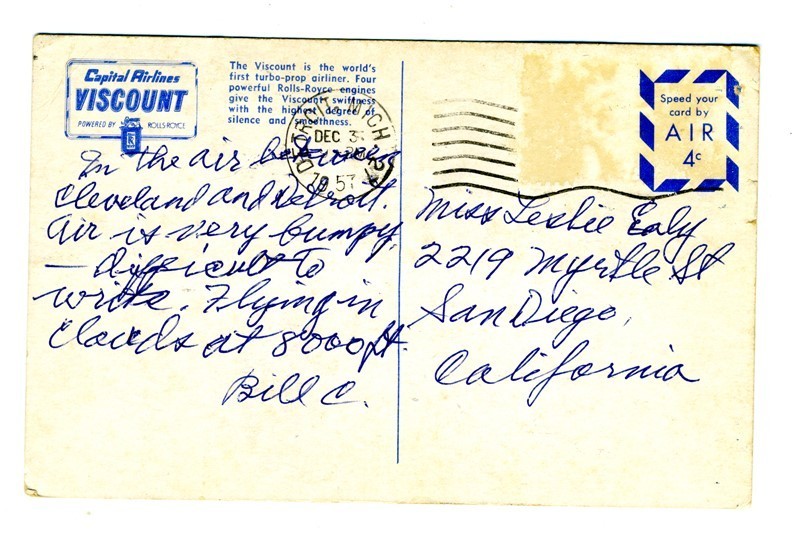 Capital Airlines
VISCOUNT
POWERED BY ROLLS-ROYCE
The Viscount is the world's
first turbo-prop airliner. Four
powerful Rolls-Royce engines
give the Viscount swiftness
with the highest degree of
silence and smoothness.
DETROIT, MICH
DEC 3
1957
Speed your
card by
AIR
4c
In the air between
Cleveland and Detroit.
Air is very bumpy,
— difficult to
write. Flying in
clouds at 8000 ft.
Bill C.
Miss Leslie Ealy
2219 Myrtle St
San Diego,
California